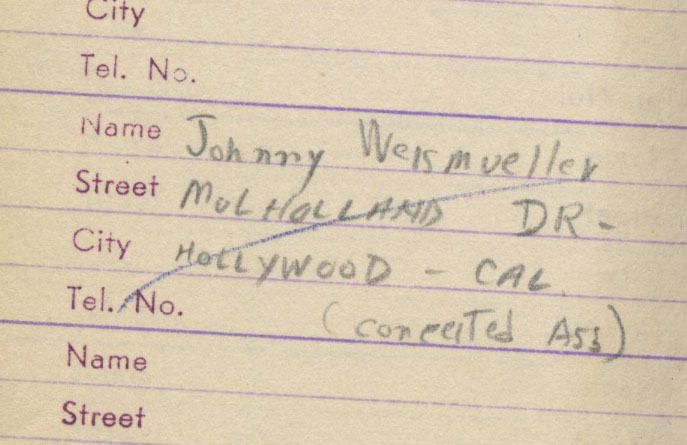 City
Tel. No.
Name Johnny Weismueller
Street MULHOLLAND DR-
City HOLLYWOOD - CAL.
Tel. No. (conceited Ass)
Name
Street